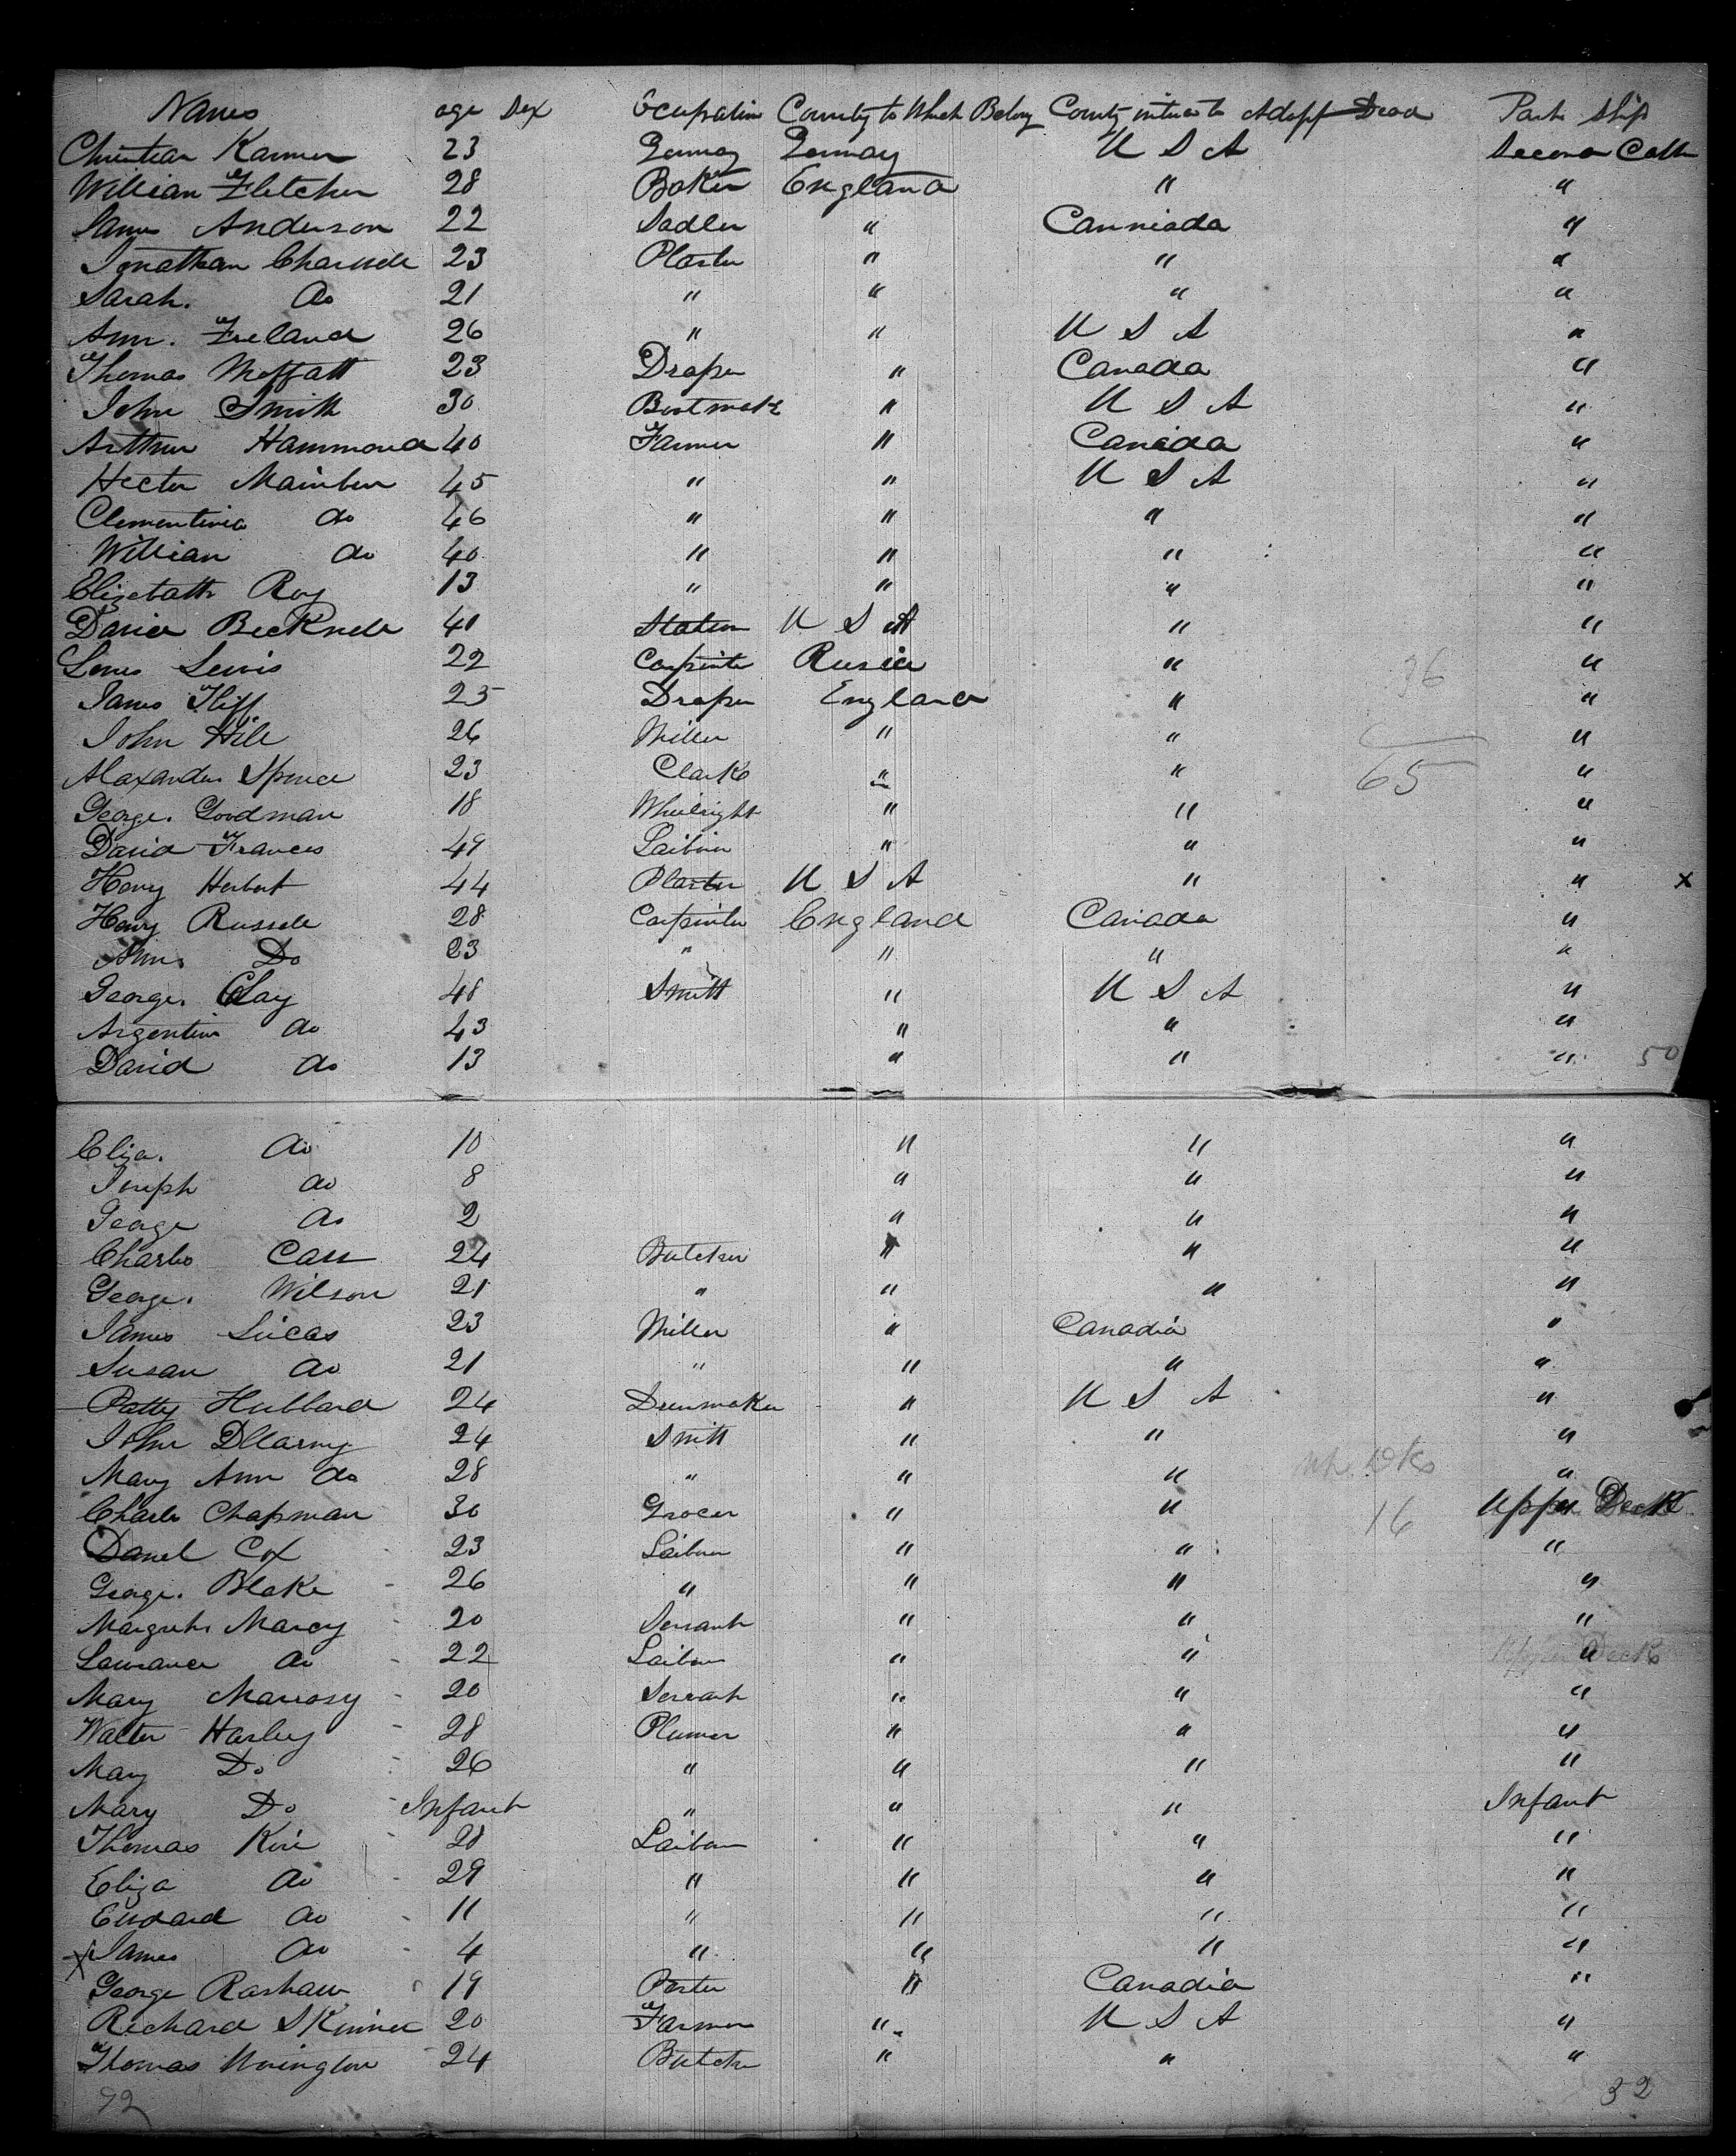 Names age Sex Ocupation County to Which Belong County intend to Adopt Dead Part Ship
Christian Karmer 23 Germay Germay U S A Second Cabb
William Fletcher 28 Baker England " "
James Anderson 22 Sadler " Canniada "
Jonathan 23 Plaster " " "
Sarah. do 21 " " " "
Ann. Freland 26 " " U S A "
Thomas Moffatt 23 Draper " Canada "
John Smith 30 Bootmak " U S A "
Arthur Hammond 40 Farmer " Canada "
Hector 45 " " U S A "
Clementina do 46 " " " "
William do 40 " " " "
Elizebath Roy 13 " " " "
David Becknell 40 U S A " "
Lewis 22 Carpinter Rusia " "
James Iliff 25 Draper England " "
John Hill 26 Miller " " "
Alaxander Spence 23 Clark " " " 65
George. Goodman 18 Wheelright " " "
David Frances 49 " " "
Henry Herbert 44 Plaster U S A " " x
Henry Russell 28 Carpinter England Canada "
Ann. Do 23 " " " "
George. Clay 48 Smith " U S A "
Argentin do 43 " " "
David do 13 " " " 50
Eliza. do 10 " " "
Joseph do 8 " " "
George do 2 " " "
Charles Carr 24 Butcher " " "
George. Wilson 21 " " " "
James Lucas 23 Miller " Canadia "
Susan do 21 " " " "
Patty Hubbard 24 " U S A "
John 24 Smith " " "
Mary Ann do 28 " " " "
Charls Chapman 30 Grocer " " 16 Upper Deck
Danel Cox 23 " " "
George. Blake 26 " " " "
Marcy 20 Servant " " "
Lawrance do 22 " " "
Mary 20 Servant " " "
Walter Harley 28 Plumer " " "
Mary Do 26 " " " "
Mary Do Infant " " " Infant
Thomas 28 " " "
Eliza do 29 " " " "
Edward do 11 " " " "
x James do 4 " " " "
George 19 Porter " Canadia "
Richard Skinner 20 Farmer " U S A "
Thomas 24 Butcher " " "
92 32